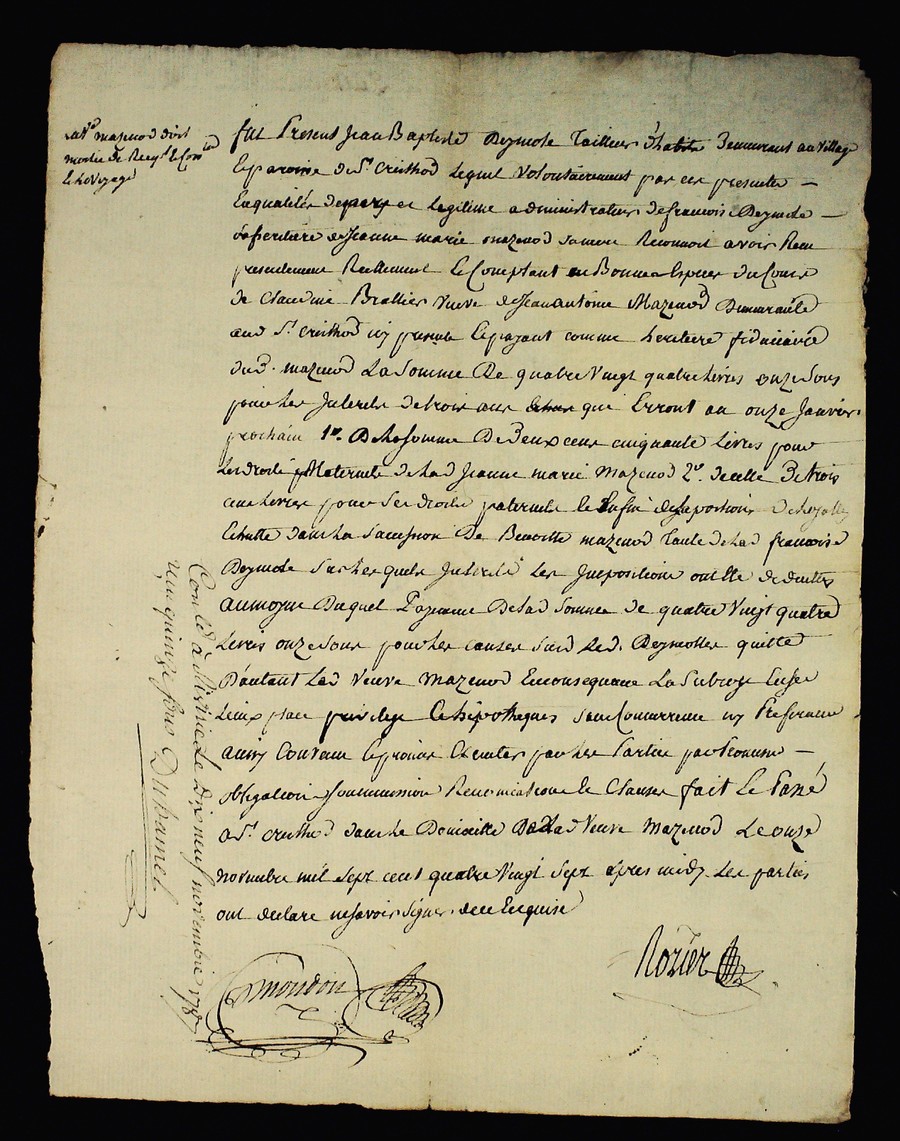 mazenod doit
moitié de
le voyage
fut Present Jean Baptiste Deymote Tailleur d'habits Demeurant au village
Et paroisse de St. Cristhod lequel volontairement par ces presentes —
En qualité de pere et legitime administrateur de francois Deymote —
heritiere de Jeanne marie mazenod sa mere Reconnoit avoir Receu
presentement Reellement Et Comptant en Bonnes Especes du Cours
de Claudine Brallier veuve de Jean antoine Mazenod Demeurante
aud St. Cristhod icy presente Et payant comme heritiere fiduciaire
dud. mazenod La Somme De quatre vingt quatre livres onze Sous
pour les Interets de trois ans que Erront au onze Janvier
prochain 1o. De la somme De Deux cent cinquante Livres pour
Les droits Maternels de lad Jeanne marie Mazenod 2o. de celle De trois
cent livres pour Ses droits paternels Et Enfin de la portion
Echutte dans la Succession De Benoitte mazenod Tante de lad francoise
Deymote Sur lesquels Interets Les Impositions ont Ete deduittes
aumoyen Duquel Payement De lad Somme de quatre vingt quatre
Livres onze Sous pour les causes Susd Led. Deymotte quitte
D'autant Lad veuve mazenod En consequance La Subroge En ses
Lieux place privilege Et hipotheques Sans Concurrence ny Preferance
ainsy Convenu Et promis Executer par les Parties par Promesse —
obligation Soummission Renonciation Et Clauses fait Et Passé
a St. Cristhod dans le Domicille De Lad veuve Mazenod Le onze
novembre mil Sept cent quatre vingt Sept apres midy Les parties
ont declaré ne savoir Signer de ce Enquise
Rozier
Simondon
Con.lé à le Dix neuf novembre 1787
Reçu quinze sous Duhamel